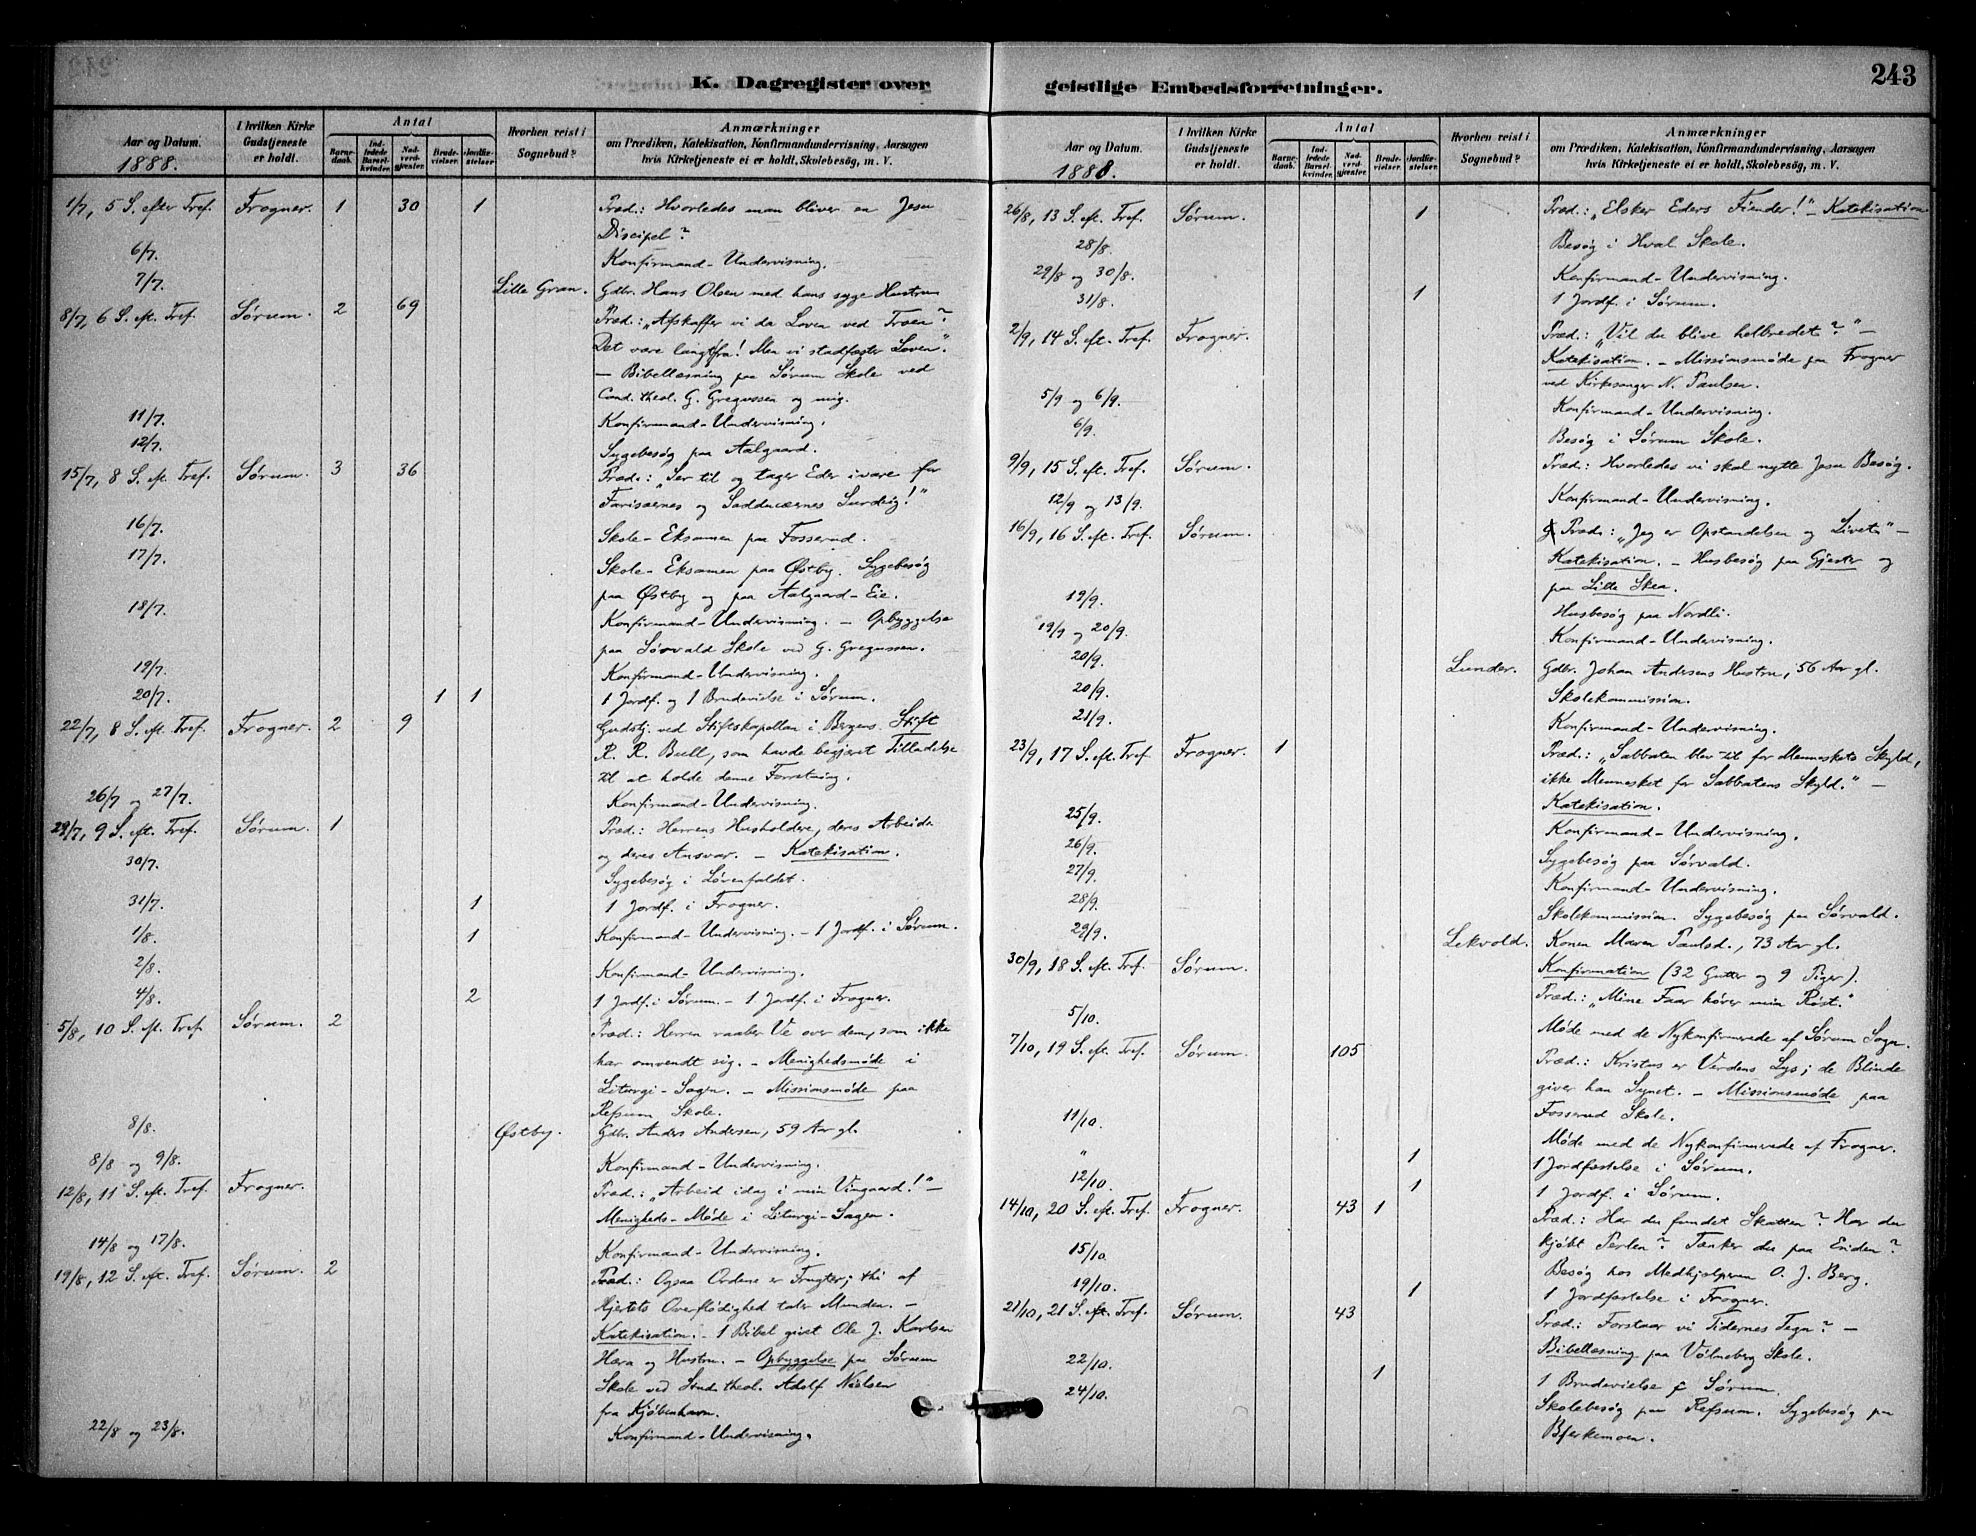 243
K. Dagregister over geistlige Embedsforretninger.
Aar og Datum.
1888.
I hvilken Kirke Gudstjeneste er holdt.
Antal
Barnedaab.
Indledede Barselkvinder.
Nadverdgjester.
Brudevielser.
Jordfæstelser.
Hvorhen reist i Sognebud?
Anmærkninger
om Prædiken, Katekisation, Konfirmandundervisning, Aarsagen
hvis Kirketjeneste ei er holdt, Skolebesøg, m. V.
1/7, 5 S. efter Tref. Frogner. 1 30 1 Præd.: Hvorledes man bliver en Jesu
Discipel?
6/7. Konfirmand-Undervisning.
7/7. Lille Gran. Gdbr. Hans Olsen med hans syge Hustru
8/7, 6 S. eft. Tref. Sørum. 2 69 Præd.: „Afskaffer vi da Loven ved Troen?
Det være langtfra! Men vi stadfæster Loven“.
— Bibellæsning paa Sørum Skole ved
Cand. theol. G. Gregussen og mig.
11/7. Konfirmand-Undervisning.
12/7. Sygebesøg paa Aalgaard.
15/7, 8 S. eft. Tref. Sørum. 3 36 Præd.: „Ser til og tager Eder ivare for
Farisæernes og Sadducæernes Surdeig!“
16/7. Skole-Eksamen paa Fosserud.
17/7. Skole-Eksamen paa Østby. Sygebesøg
paa Østby og paa Aalgaard-Eie.
18/7. Konfirmand-Undervisning. — Opbyggelse
paa Sørvald Skole ved G. Gregussen.
19/7. Konfirmand-Undervisning.
20/7. 1 1 1 Jordf. og 1 Brudevielse i Sørum.
22/7, 8 S. eft. Tref. Frogner. 2 9 Gudstj. ved Stiftskapellan i Bergens Stift
R. R. Bull, som havde begjæret Tilladelse
til at holde denne Forretning.
26/7 og 27/7. Konfirmand-Undervisning.
29/7, 9 S. eft. Tref. Sørum. 1 Præd.: Herrens Husholdere, deres Arbeide
og deres Ansvar. — Katekisation.
30/7. Sygebesøg i Lørenfaldet.
31/7. 1 1 Jordf. i Frogner.
1/8. 1 Konfirmand-Undervisning. — 1 Jordf. i Sørum.
2/8. Konfirmand-Undervisning.
4/8. 2 1 Jordf. i Sørum. — 1 Jordf. i Frogner.
5/8, 10 S. eft. Tref. Sørum. 2 Præd.: Herren raaber Ve over dem, som ikke
har omvendt sig. — Menighedsmøde i
Liturgi-Sagen. — Missionsmøde paa
Refsum Skole.
8/8. Østby. Gdbr. Anders Andersen, 59 Aar gl.
8/8 og 9/8. Konfirmand-Undervisning.
12/8, 11 S. eft. Tref. Frogner. Præd.: „Arbeid idag i min Vingaard!“ —
Menigheds-Møde i Liturgi-Sagen.
14/8 og 17/8. Konfirmand-Undervisning.
19/8, 12 S. eft. Tref. Sørum. 2 Præd.: Ogsaa Ordene er Frugter; thi af
Hjertets Overflødighed taler Munden. —
Katekisation. — 1 Bibel givet Ole J. Karlsen
Hæra og Hustru. — Opbyggelse paa Sørum
Skole ved Stud. theol. Adolf Nielsen
fra Kjøbenhavn.
22/8 og 23/8. Konfirmand-Undervisning.
Aar og Datum.
1888.
I hvilken Kirke Gudstjeneste er holdt.
Antal
Barnedaab.
Indledede Barselkvinder.
Nadverdgjester.
Brudevielser.
Jordfæstelser.
Hvorhen reist i Sognebud?
Anmærkninger
om Prædiken, Katekisation, Konfirmandundervisning, Aarsagen
hvis Kirketjeneste ei er holdt, Skolebesøg, m. V.
26/8, 13 S. eft. Tref. Sørum. 1 Præd.: „Elsker Eders Fiender!“ — Katekisation
28/8. Besøg i Hval Skole.
29/8 og 30/8. Konfirmand-Undervisning.
31/8. 1 1 Jordf. i Sørum.
2/9, 14 S. eft. Tref. Frogner. Præd.: „Vil du blive helbredet?“ —
Katekisation. — Missionsmøde paa Frogner
ved Kirkesanger N. Paulsen.
5/9 og 6/9. Konfirmand-Undervisning.
6/9. Besøg i Sørum Skole.
9/9, 15 S. eft. Tref. Sørum. Præd.: Hvorledes vi skal nytte Jesu Besøg.
12/9 og 13/9. Konfirmand-Undervisning.
16/9, 16 S. eft. Tref. Sørum. Præd.: „Jeg er Opstandelsen og Livet“ —
Katekisation. — Husbesøg paa Gjester og
paa Lille Skea.
19/9. Husbesøg paa Nordli.
19/9 og 20/9. Konfirmand-Undervisning.
20/9. Lunder. Gdbr. Johan Andersens Hustru, 56 Aar gl.
20/9. Skolekommission.
21/9. Konfirmand-Undervisning.
23/9, 17 S. eft. Tref. Frogner. 1 Præd.: „Sabbaten blev til for Menneskets Skyld,
ikke Mennesket for Sabbatens Skyld.“ —
Katekisation.
25/9. Konfirmand-Undervisning.
26/9. Sygebesøg paa Sørvald.
27/9. Konfirmand-Undervisning.
28/9. Skolekommission. Sygebesøg paa Sørvald.
29/9. Lekvold. Konen Maren Paulsd., 73 Aar gl.
30/9, 18 S. eft. Tref. Sørum. Konfirmation (32 Gutter og 9 Piger).
Præd.: „Mine Faar hører min Røst.“
5/10. Møde med de Nykonfirmerede af Sørum Sogn.
7/10, 19 S. eft. Tref. Sørum. 105 Præd.: Kristus er Verdens Lys; de Blinde
giver han Synet. — Missionsmøde paa
Fosserud Skole.
11/10. Møde med de Nykonfirmerede af Frogner.
„ 1 1 Jordfæstelse i Sørum.
12/10. 1 1 Jordf. i Sørum.
14/10, 20 S. eft. Tref. Frogner. 43 1 Præd.: Har du fundet Skatten? Har du
kjøbt Perlen? Tænker du paa Enden?
15/10. Besøg hos Medhjelperen O. J. Berg.
19/10. 1 1 Jordfæstelse i Frogner.
21/10, 21 S. eft. Tref. Sørum. 43 Præd.: Forstaar vi Tidernes Tegn? —
Bibellæsning paa Vølneberg Skole.
22/10. 1 1 Brudevielse i Sørum.
24/10. Skolebesøg paa Refsum. Sygebesøg paa
Bjerkemoen.